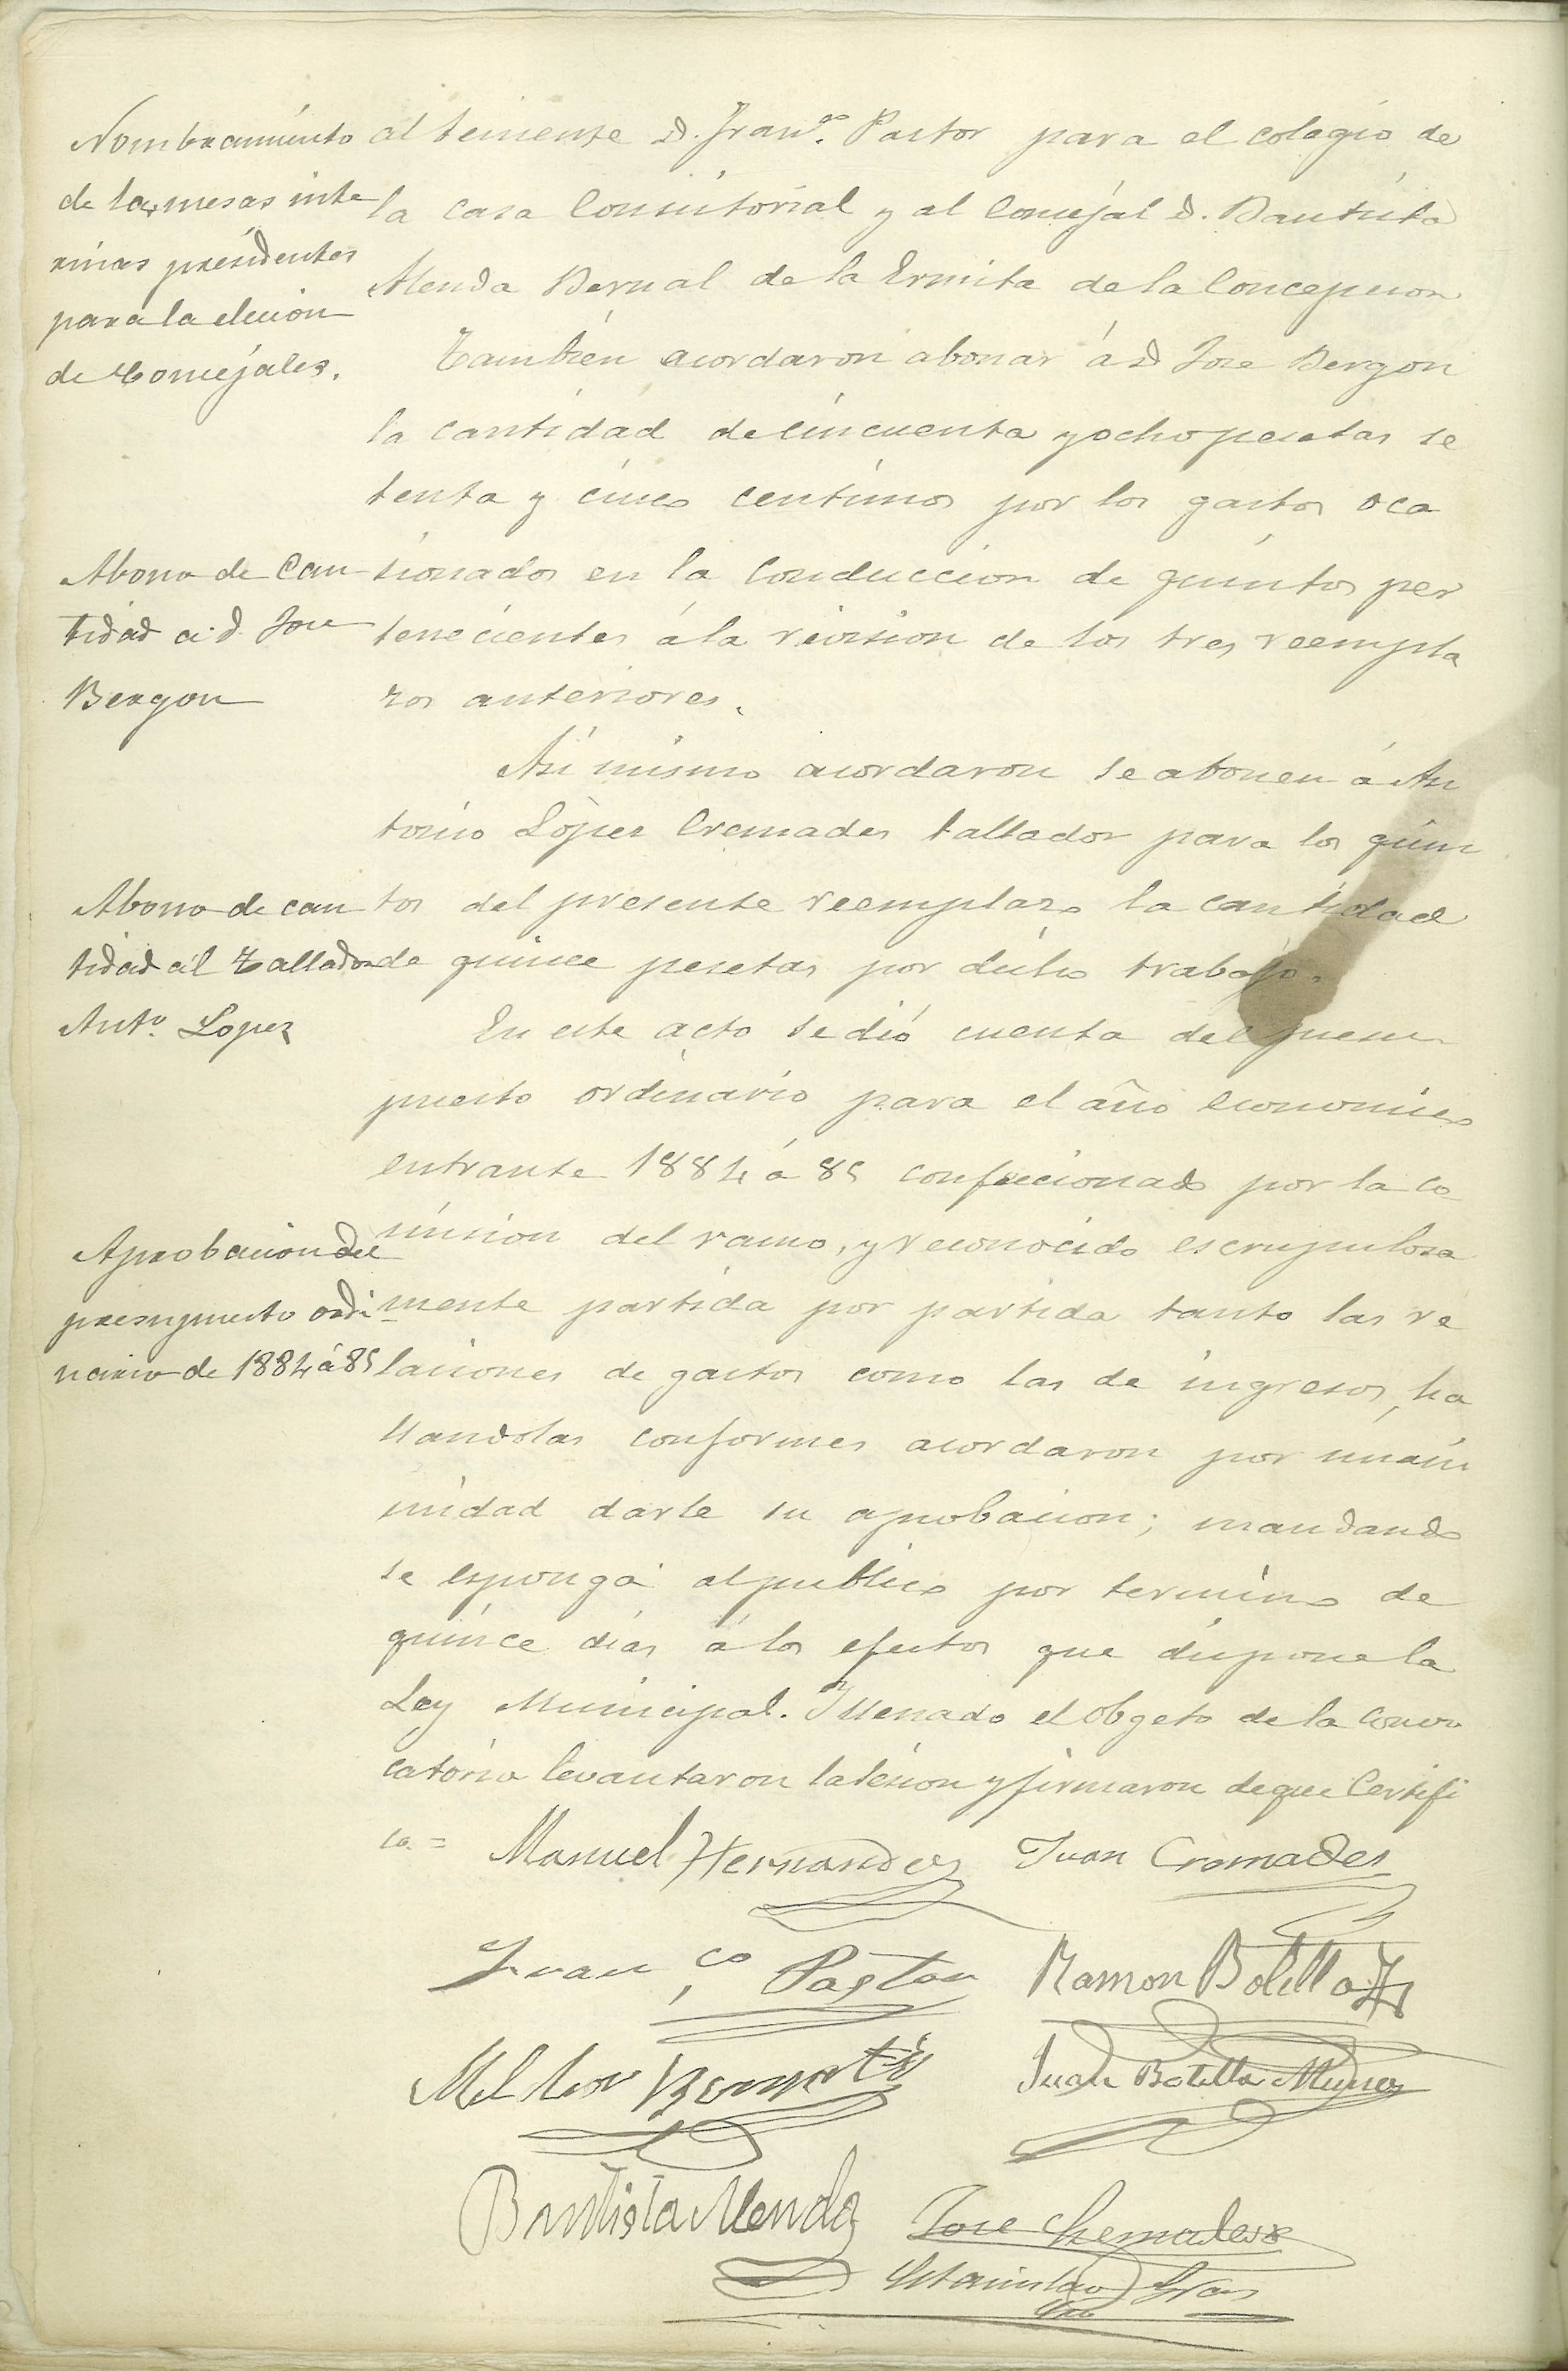 Nombramiento
de las mesas inte
rinas presidentes
para la elecion
de Concejales.
al teniente D. Franco. Pastor para el colegio de
la casa Consistorial y al Concejal D. Bautista
Alenda Bernal de la Ermita de la Concepcion
Tambien acordaron abonar á D Jose Bergon
la cantidad de cincuenta y ocho pesetas se
tenta y cinco centimos por los gastos oca
sionados en la conduccion de quintos per
tenecientes á la revision de los tres reempla
zos anteriores.
Abono de can
tidad a D. Jose
Bergon
Asi mismo acordaron se abonen á An
tonio López Cremades tallador para los quin
tos del presente reemplazo la cantidad
de quince pesetas por dicho trabajo.
Abono de can
tidad al Tallador
Anto. Lopez
En este acto se dió cuenta del presu
puesto ordinario para el año economico
entrante 1884 á 85 confeccionado por la co
mision del ramo, y reconocido escrupulosa
mente partida por partida tanto las re
laciones de gastos como las de ingresos, ha
llandolas conformes acordaron por unani
midad darle su aprobacion; mandando
se esponga al publico por termino de
quince dias á los efectos que dispone la
Ley Municipal. Y llenado el obgeto de la convo
catoria levantaron la sesion y firmaron de que Certifi
co. =
Aprobacion del
presupuesto ordi
nario de 1884 á 85
Manuel Hernandez Juan Cremades
Franco. Pastor Ramon Botella
Melchor Bernat Juan Botella Muñoz
Bautista Alenda Jose Cremades
Estanislao